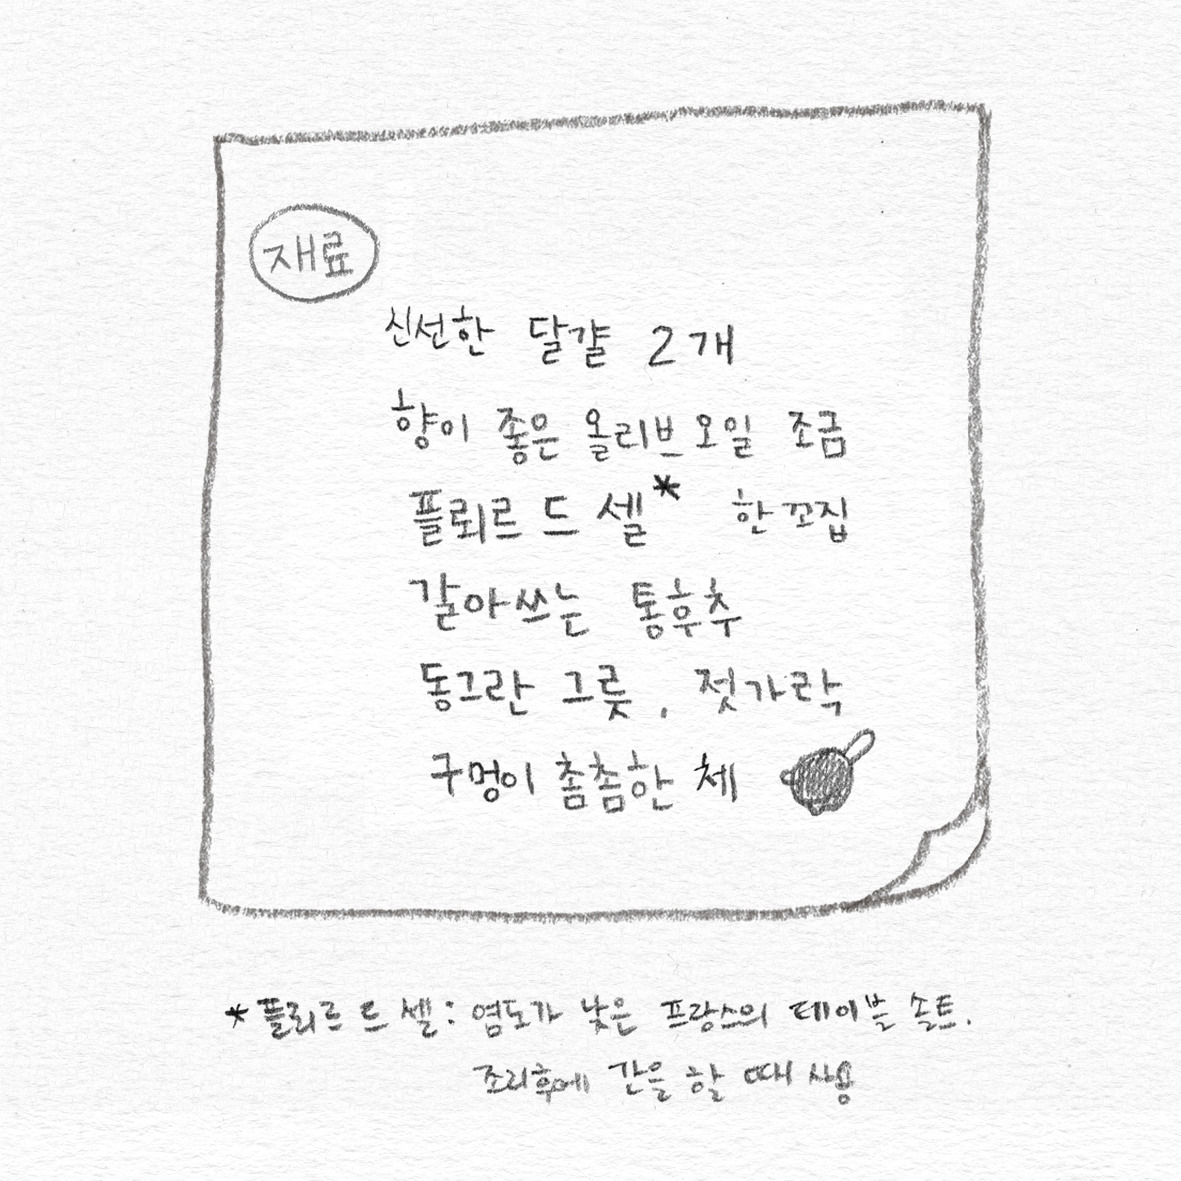 재료
신선한 달걀 2개
향이 좋은 올리브 오일 조금
플뢰르 드 셀* 한 꼬집
갈아쓰는 통후추
동그란 그릇, 젓가락
구멍이 촘촘한 체
*플뢰르 드 셀: 염도가 낮은 프랑스의 테이블 솔트.
조리후에 간을 할 때 사용